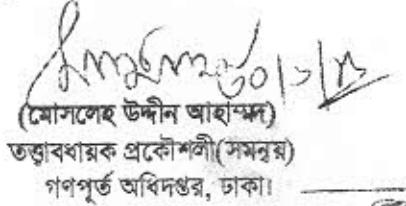 ৩০/১/১৩
(মোসলেহ উদ্দীন আহাম্মদ)
তত্ত্বাবধায়ক প্রকৌশলী(সমন্বয়)
গণপূর্ত অধিদপ্তর, ঢাকা।